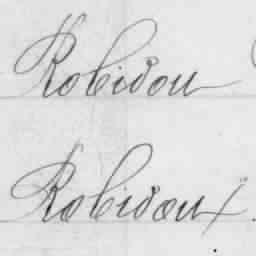 Robidou
Robidoux.